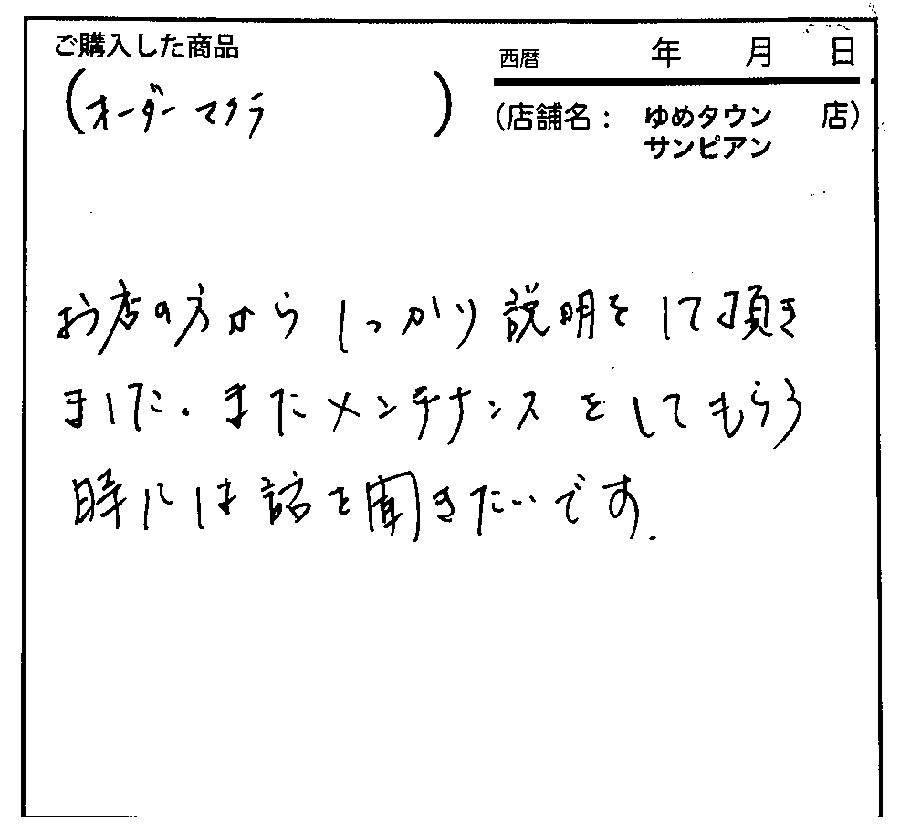 ご購入した商品
(オーダーマクラ)
西暦 年 月 日
(店舗名： ゆめタウン 店)
サンピアン
お店の方からしっかり説明をして頂き
ました。またメンテナンスをしてもらう
時には話を聞きたいです.